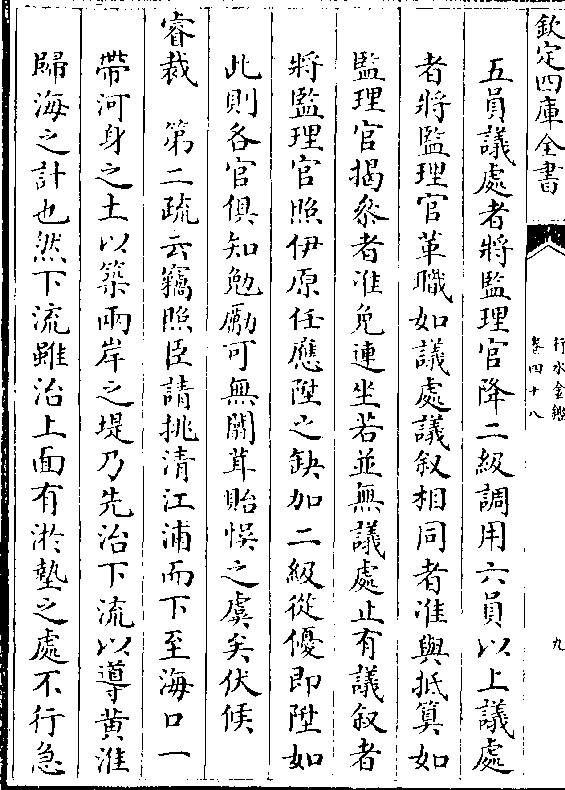 欽定四庫全書
行水金鑑
卷四十八
九
五員議處者將監理官降二級調用六員以上議處
者將監理官革職如議處議叙相同者准與抵算如
監理官揭叅者准免連坐若並無議處止有議叙者
將監理官照伊原任應陞之缺加二級從優即陞如
此則各官俱知勉勵可無闒茸貽悮之虞矣伏候
睿裁　第二疏云竊照臣請挑清江浦而下至海口一
帶河身之土以築兩岸之堤乃先治下流以導黄淮
歸海之計也然下流雖治上面有淤墊之處不行急